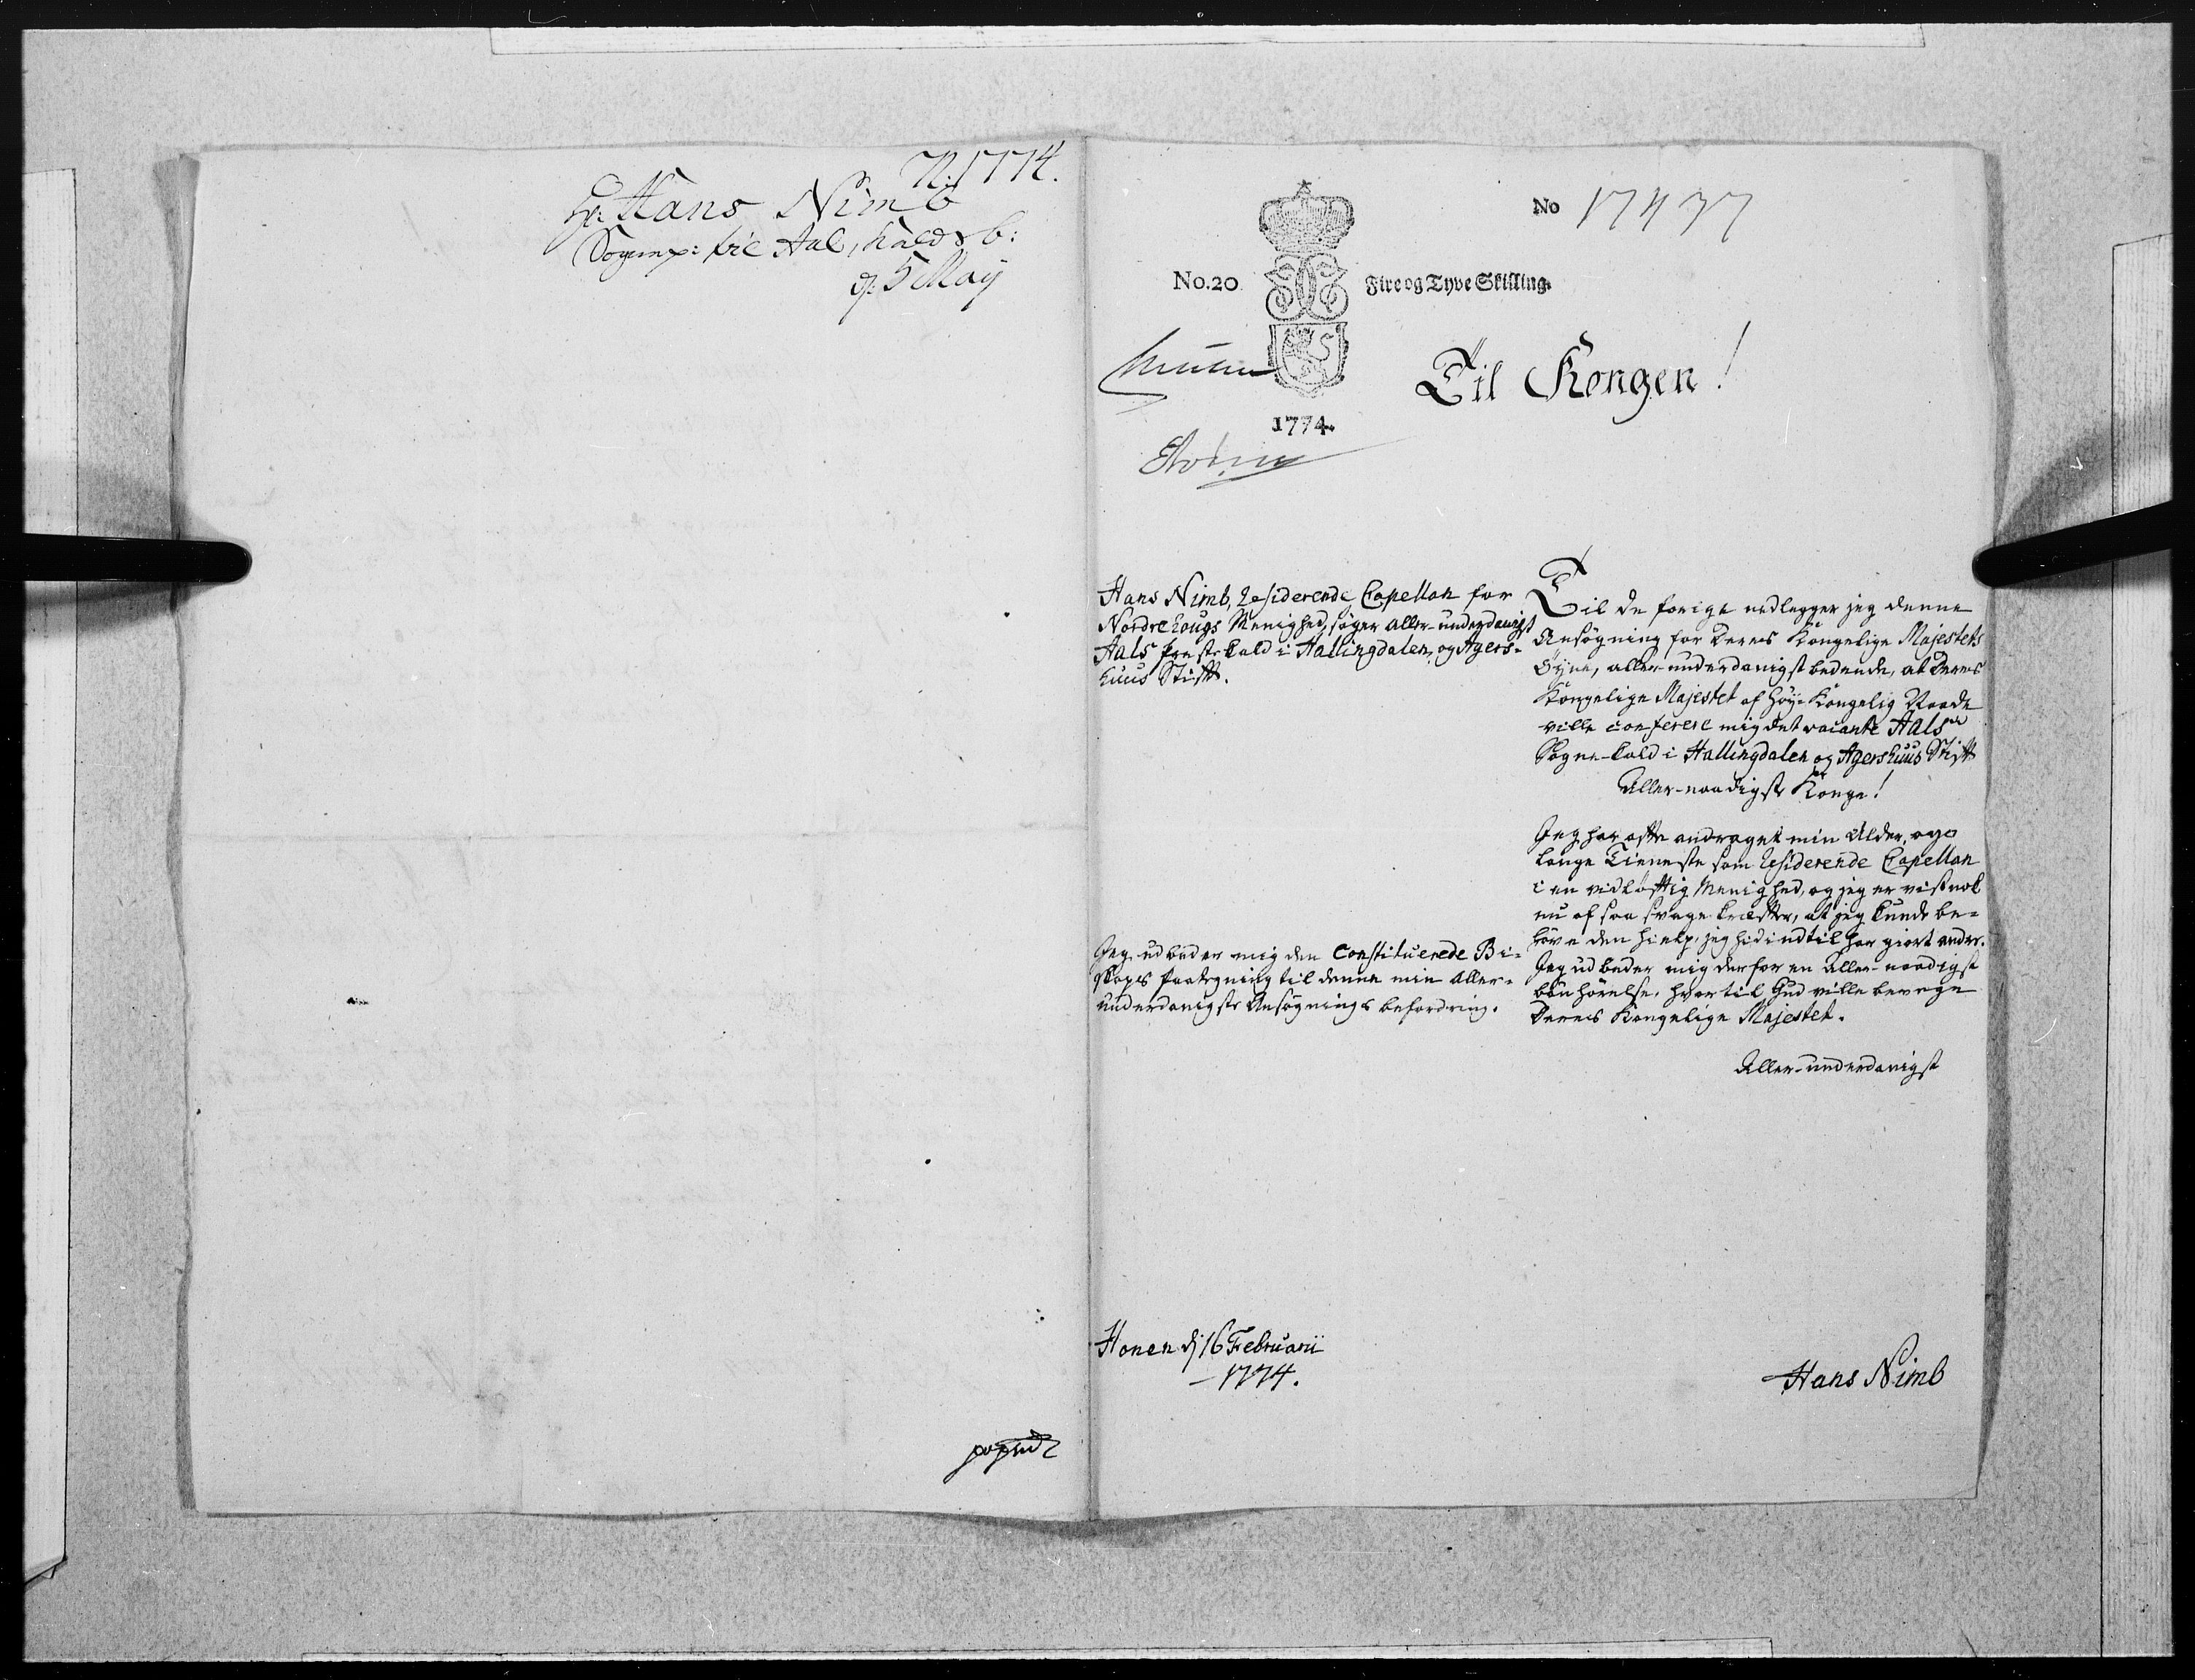 N. 1774.
Hr. Hans Nimb
Sognepr: til Aal, Kalds b:
d. 5 Maij
No 17437
No. 20 Fire og Tyve Skilling.
1774.
Til Kongen!
Hans Nimb, Residerende Capellan for
Nordrehougs Menighed, søger aller-underdanigst
Aals præste kald i Hallingdalen, og Agers-
huus Stift.
Jeg udbeder mig den Constituerede Bi-
skops paategning til denne min aller-
underdanigste Ansøgnings befordring.
Honen d. 16 Februarii
- 1774.
Til de forige nedlegger jeg denne
Ansøgning for Deres Kongelige Majestets
Øyne, aller-underdanigst bedende, at Deres
Kongelige Majestet af Høy-Kongelig Naade
ville conferere mig det vacante Aals
Sogne-kald i Hallingdalen og Agershuus Stift
Aller-naadigste Konge!
Jeg har ofte andraget min Alder, og
lange Tieneste som Residerende Capellan
i en vidløftig Menighed, og jeg er vist nok
nu af saa svage kræfter, at jeg kunde be-
høve den hielp, jeg hidindtil har giort andre.
Jeg udbeder mig derfor en Aller-naadigst
bønhørelse, hvortil Gud ville bevege
Deres Kongelige Majestet.
Aller-underdanigst
Hans Nimb